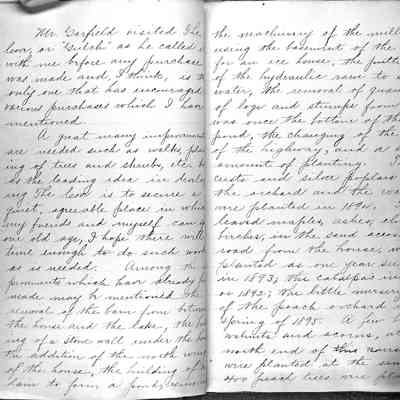 Mr. Garfield visited The
Cove, or "Gulch" as he called i
with me before any purchase
was made and, I think, is th
only one that has encouraged
various purchases which I have
mentioned.
A great many improvement
are needed such as walks, plan
ing of trees and shrubs, etc. b
as the leading idea in develop
ing The Cove is to secure a
quiet, agreeable place in which
my friends and myself can
our old age, I hope there will
time enough to do such work
as is needed. Among the
provements which have already
made may be mentioned the
removal of the barn from betwe
the house and the lake, the
ing of a stone wall under the
the addition of the north wing
of the house, the building of
dam to form a pond, remova
the machinery of the mill
using the basement of the
for an ice house, the putti
of the hydraulic ram to s
water, the removal of quan
of logs and stumps from
was once the bottom of the
pond, the changing of the
of the highway, and a
amount of planting. T
and silver poplars
the orchard and the
were planted in 1894.
leaved maples, ashes,
birches, in the sand
road from the house, w
planted as one year see
in 1893; the catalpas in
or 1892; the little nursery
of the peach orchard
spring of 1895. A few
walnuts and acorns, at
north end of this
were planted at the same
400 peach trees were